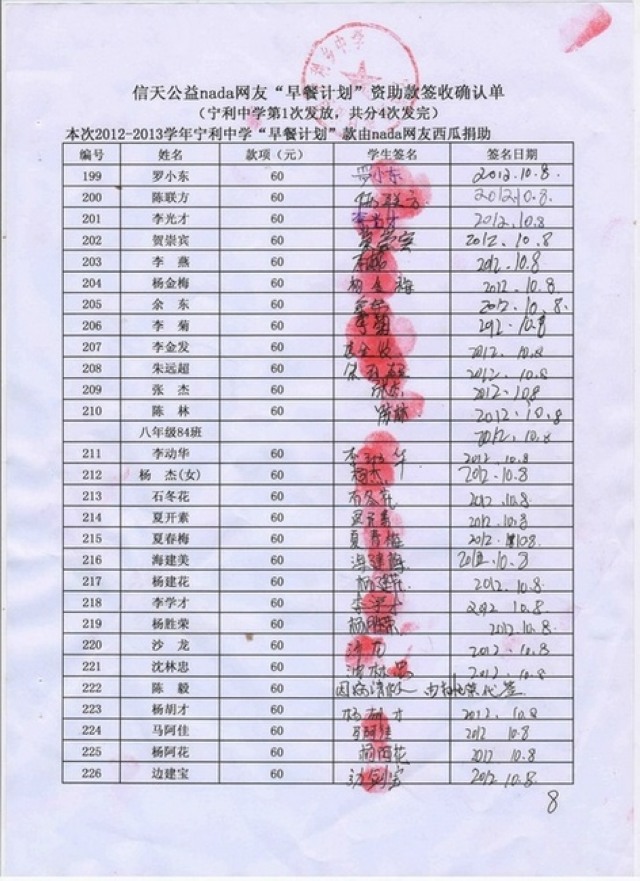 利乡中学
信天公益nada网友“早餐计划”资助款签收确认单
（宁利中学第1次发放，共分4次发完）
本次2012-2013学年宁利中学“早餐计划”款由nada网友西瓜捐助
编号 姓名 款项（元） 学生签名 签名日期
199 罗小东 60 罗小东 2012.10.8.
200 陈联方 60 联方 2012.10.8
201 李光才 60 李光才 2012.10.8
202 贺崇宾 60 2012.10.8
203 李 燕 60 李燕 2012.10.8
204 杨金梅 60 杨金梅 2012.10.8
205 余 东 60 2012.10.8
206 李 菊 60 李菊 2012.10.8
207 李金发 60 李金发 2012.10.8
208 朱远超 60 2012.10.8
209 张 杰 60 张杰 2012.10.8
210 陈 林 60 陈林 2012.10.8
八年级84班 2012.10.8
211 李动华 60 李动华 2012.10.8
212 杨 杰(女) 60 杨杰 2012.10.8
213 石冬花 60 石冬花 2012.10.8
214 夏开素 60 夏开素 2012.10.8
215 夏春梅 60 夏春梅 2012.10.8.
216 海建美 60 海建美 2012.10.8
217 杨建花 60 杨建花 2012.10.8
218 李学才 60 李学才 2012.10.8
219 杨胜荣 60 杨胜荣 2012.10.8
220 沙 龙 60 沙龙 2012.10.8
221 沈林忠 60 沈林忠 2012.10.8
222 陈 毅 60 因病请假 由 代签
223 杨胡才 60 杨胡才 2012.10.8
224 马阿佳 60 马阿佳 2012 10.8
225 杨阿花 60 杨阿花 2012 10.8
226 边建宝 60 2012 10.8
8